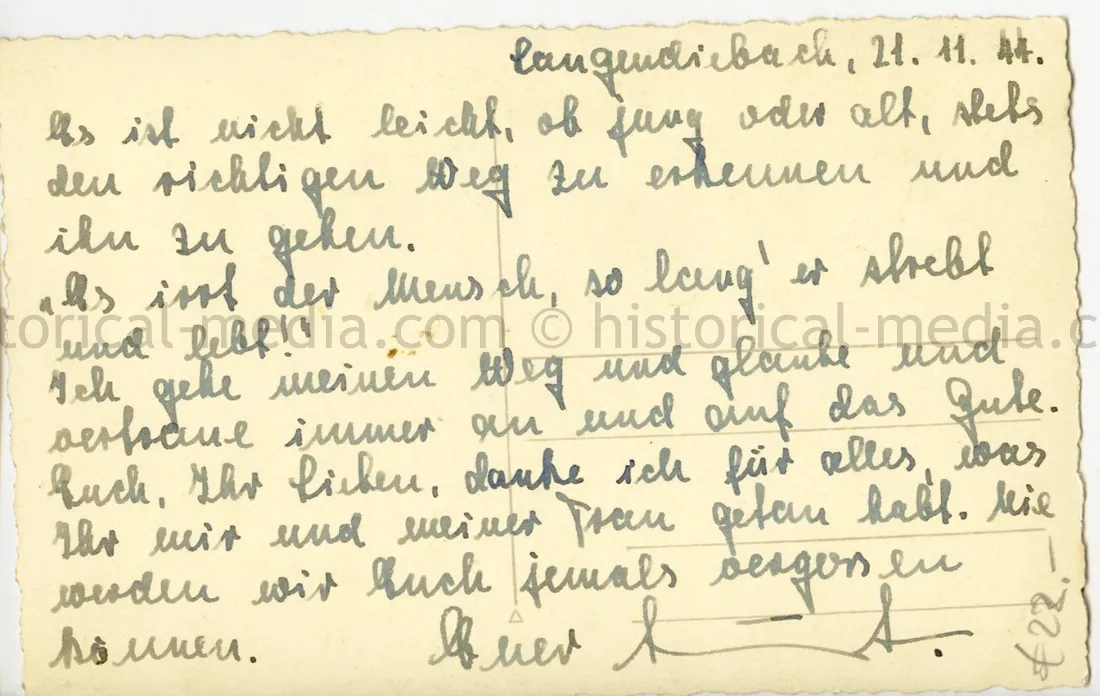 Langendiebach, 21. 11. 44.
Es ist nicht leicht, ob jung oder alt, stets
den richtigen Weg zu erkennen und
ihn zu gehen.
„Es irrt der Mensch, so lang' er strebt
und lebt!"
torical-media.com © historical-media.c
Ich gehe meinen Weg und glaube und
vertraue immer an und auf das Gute.
Euch, Ihr Lieben, danke ich für alles, was
Ihr mir und meiner Frau getan habt. Nie
werden wir Euch jemals vergessen
können. Euer
22.-